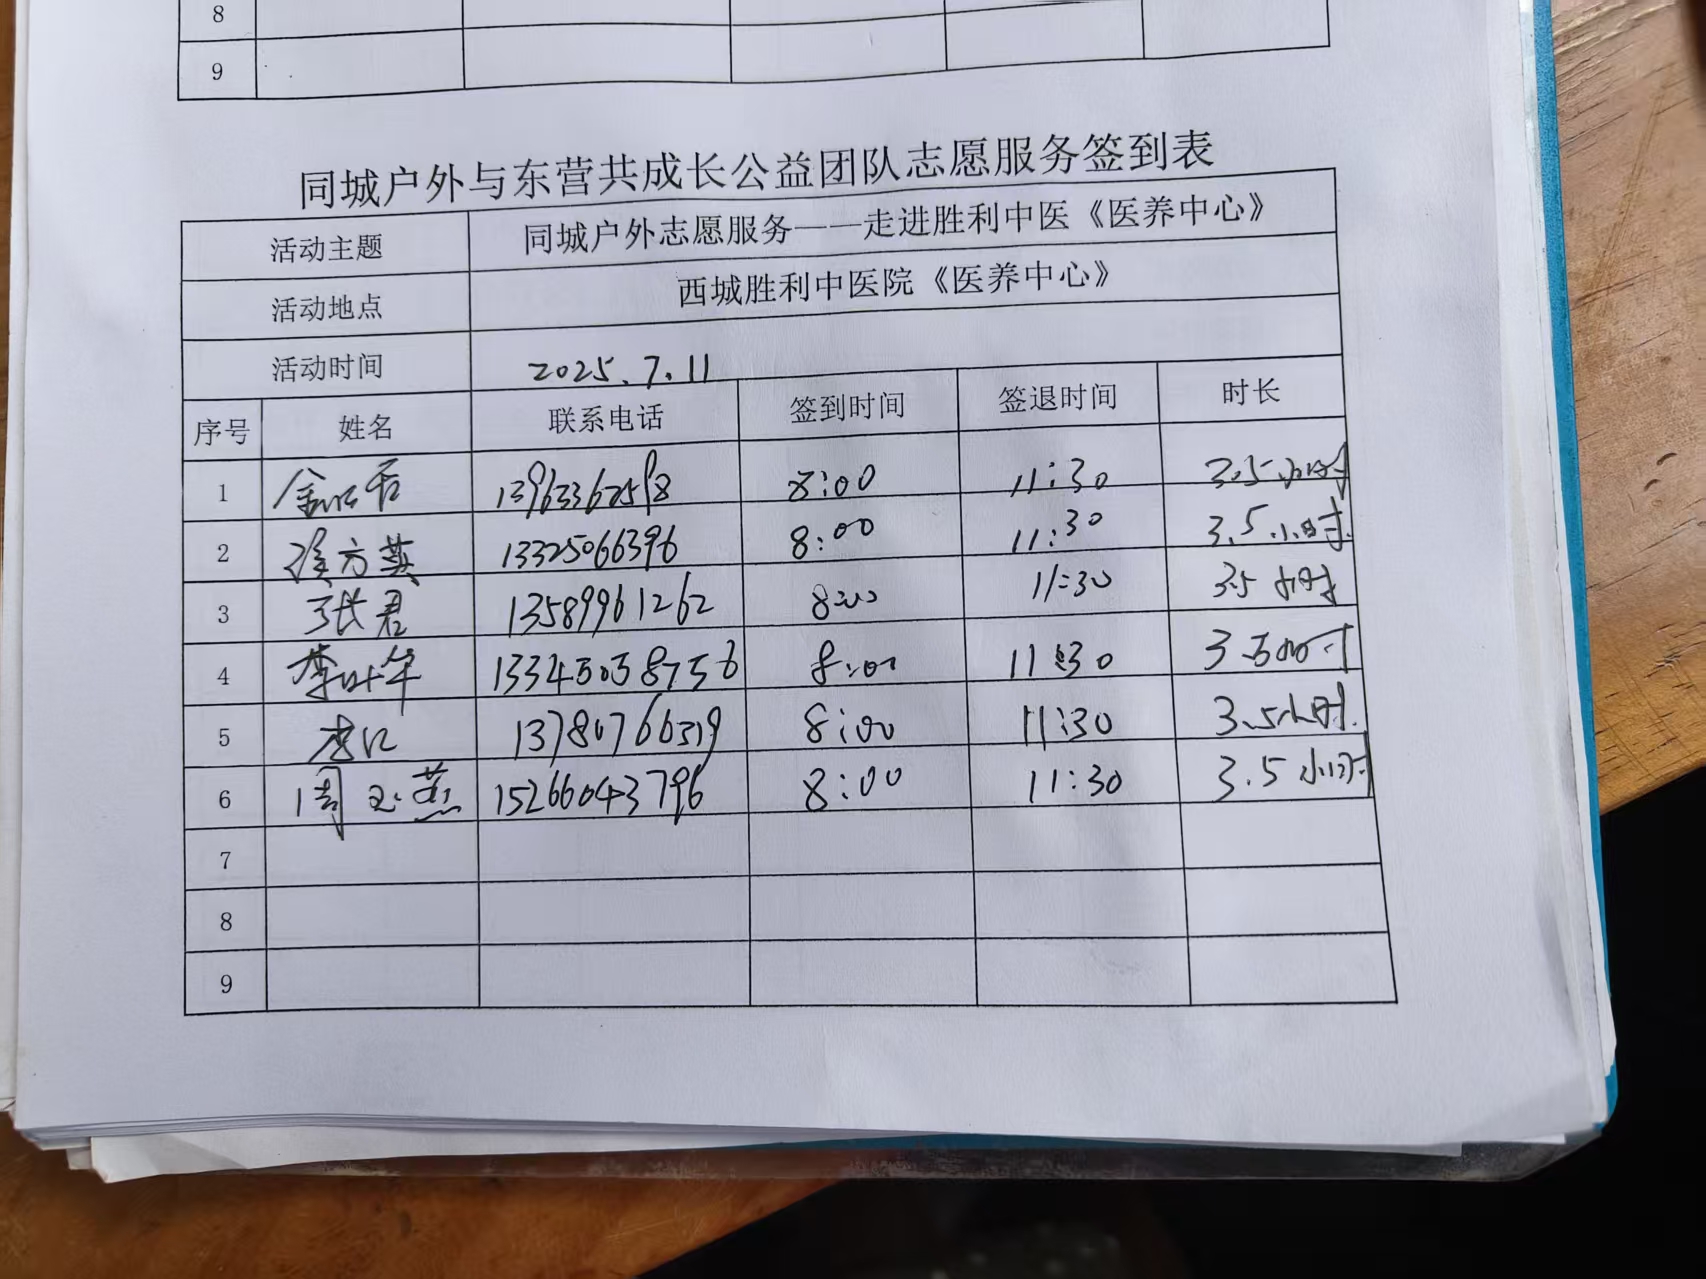 8
9
同城户外与东营共成长公益团队志愿服务签到表
活动主题 同城户外志愿服务——走进胜利中医《医养中心》
活动地点 西城胜利中医院《医养中心》
活动时间 2025.7.11
序号 姓名 联系电话 签到时间 签退时间 时长
1 13963362598 8:00 11:30 3.5小时
2 方英 13325066396 8:00 11:30 3.5小时
3 张君 13589961262 8:00 11:30 3.5小时
4 李叶华 8:00 11:30 3.5小时
5 13780766319 8:00 11:30 3.5小时
6 周玉燕 15266043796 8:00 11:30 3.5小时
7
8
9